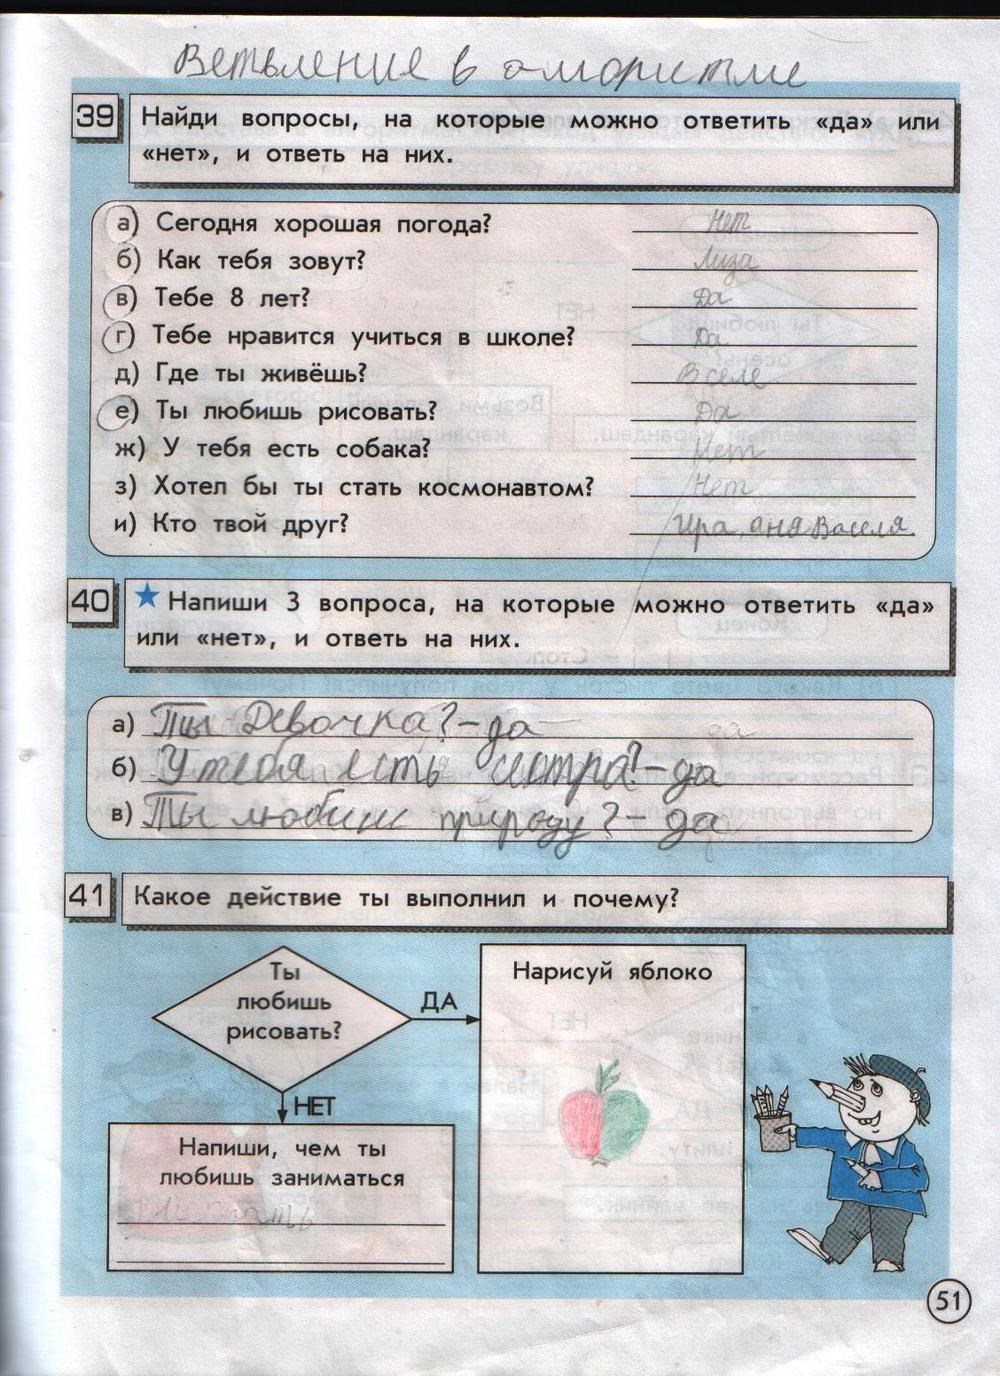 Ветвление в алгоритме
39 Найди вопросы, на которые можно ответить «да» или
«нет», и ответь на них.
а) Сегодня хорошая погода? Нет
б) Как тебя зовут? Лиза
в) Тебе 8 лет? Да
г) Тебе нравится учиться в школе? Да
д) Где ты живёшь? В селе
е) Ты любишь рисовать? Да
ж) У тебя есть собака? Нет
з) Хотел бы ты стать космонавтом? Нет
и) Кто твой друг? Ира, аня
40 Напиши 3 вопроса, на которые можно ответить «да»
или «нет», и ответь на них.
а) Ты Девочка? – да
б) У тебя есть сестра? – да
в) Ты любишь природу? – да
41 Какое действие ты выполнил и почему?
Ты
любишь
рисовать?
ДА
Нарисуй яблоко
НЕТ
Напиши, чем ты
любишь заниматься
51